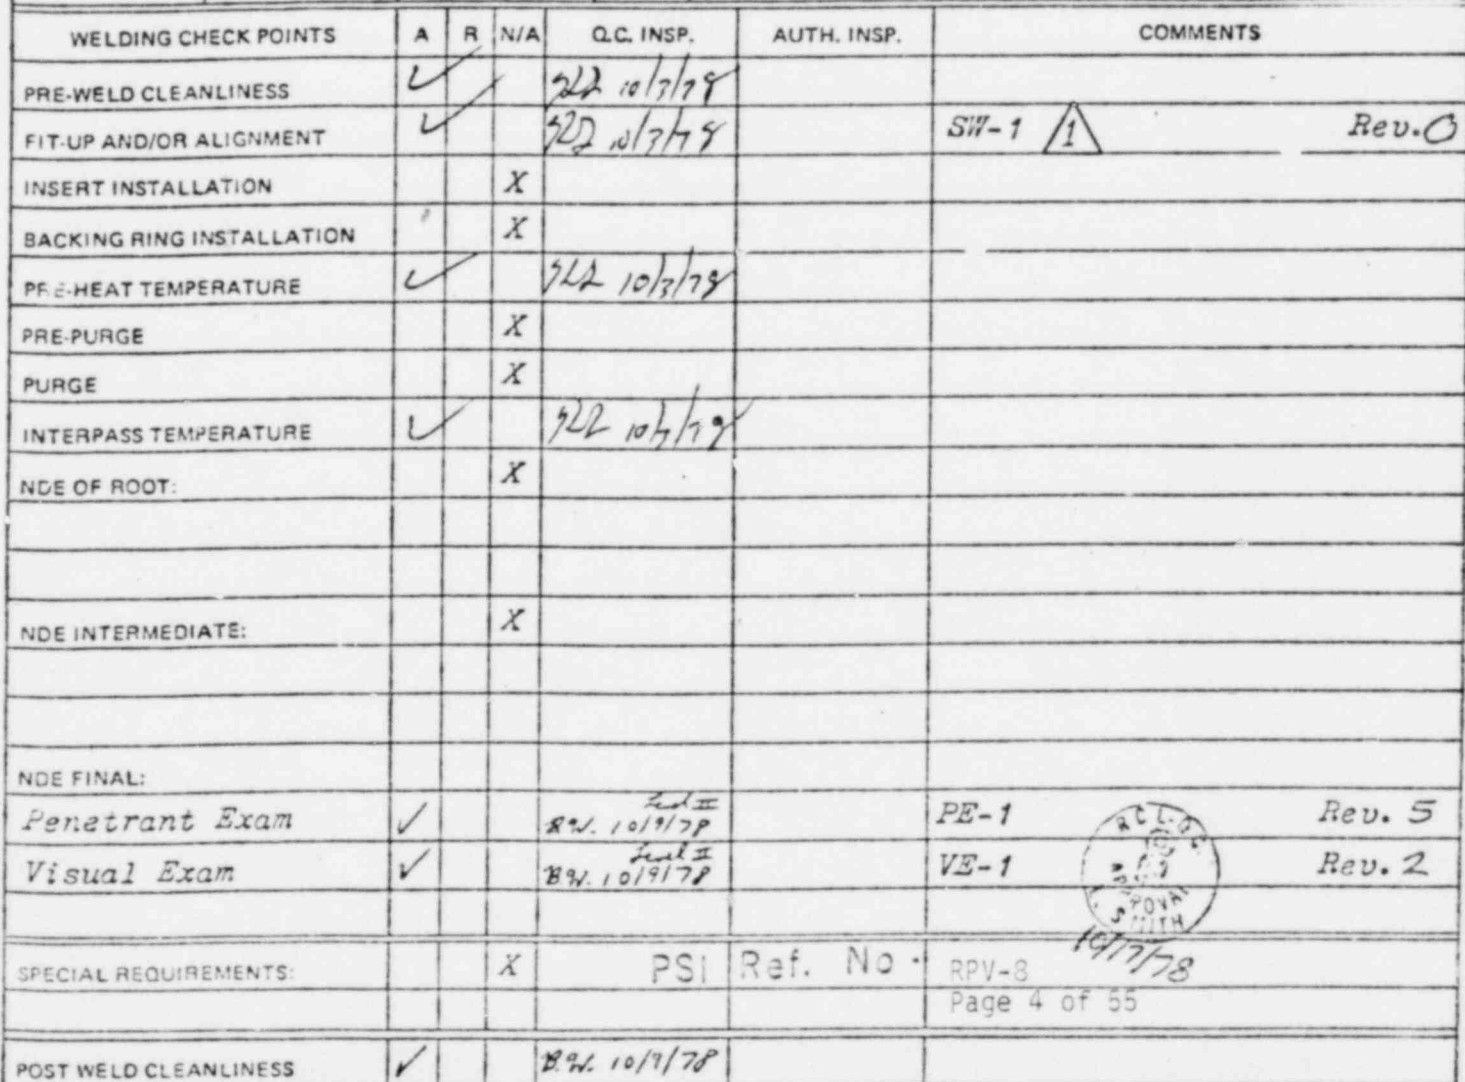 WELDING CHECK POINTS A R N/A Q.C. INSP. AUTH. INSP. COMMENTS
PRE-WELD CLEANLINESS ✓ 10/3/78
FIT-UP AND/OR ALIGNMENT ✓ 10/3/78 SW-1 1 Rev.0
INSERT INSTALLATION X
BACKING RING INSTALLATION X
PRE-HEAT TEMPERATURE ✓ 10/3/78
PRE-PURGE X
PURGE X
INTERPASS TEMPERATURE ✓
NDE OF ROOT: X
NDE INTERMEDIATE: X
NDE FINAL:
Level II
Penetrant Exam ✓ B.W. 10/9/78 PE-1 Rev. 5
Level II
Visual Exam ✓ B.W. 10/9/78 VE-1 Rev. 2
RCI-QC
APPROVAL
SMITH
10/17/78
SPECIAL REQUIREMENTS: X PSI Ref. No. RPV-8
Page 4 of 55
POST WELD CLEANLINESS ✓ B.W. 10/9/78